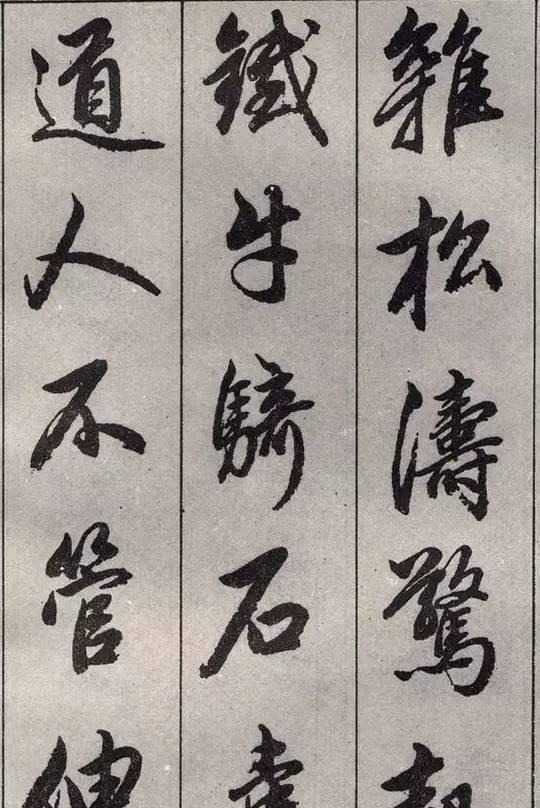 雜松濤驚
鐵牛騎石
道人不管